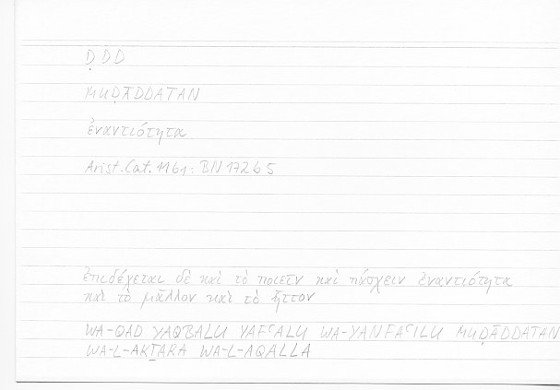 ḌDD
MUḌĀDDATAN
ἐναντιότητα
Arist. Cat. 11b1: BN 172b5
ἐπιδέχεται δὲ καὶ τὸ ποιεῖν καὶ πάσχειν ἐναντιότητα
καὶ τὸ μᾶλλον καὶ τὸ ἧττον
WA-QAD YAQBALU YAFʿALU WA-YANFAʿILU MUḌĀDDATAN
WA-L-AKṮARA WA-L-AQALLA